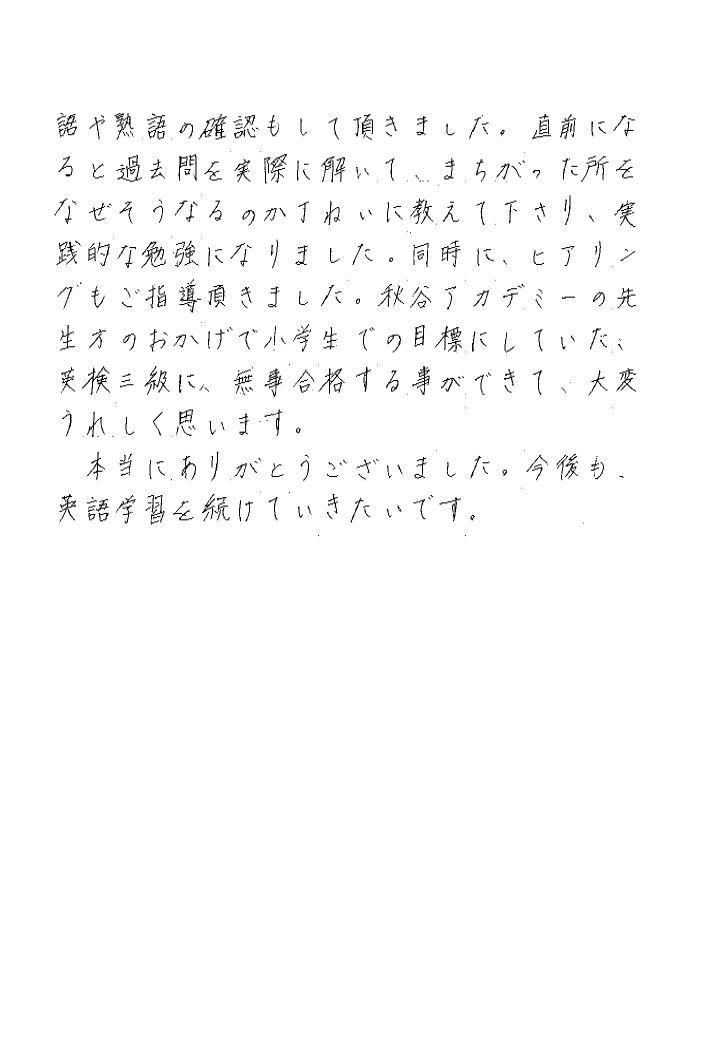 語や熟語の確認もして頂きました。直前にな
ると過去問を実際に解いて、まちがった所を
なぜそうなるのか丁ねいに教えて下さり、実
践的な勉強になりました。同時に、ヒアリン
グもご指導頂きました。秋谷アカデミーの先
生方のおかげで小学生での目標にしていた、
英検三級に、無事合格する事ができて、大変
うれしく思います。
本当にありがとうございました。今後も、
英語学習を続けていきたいです。